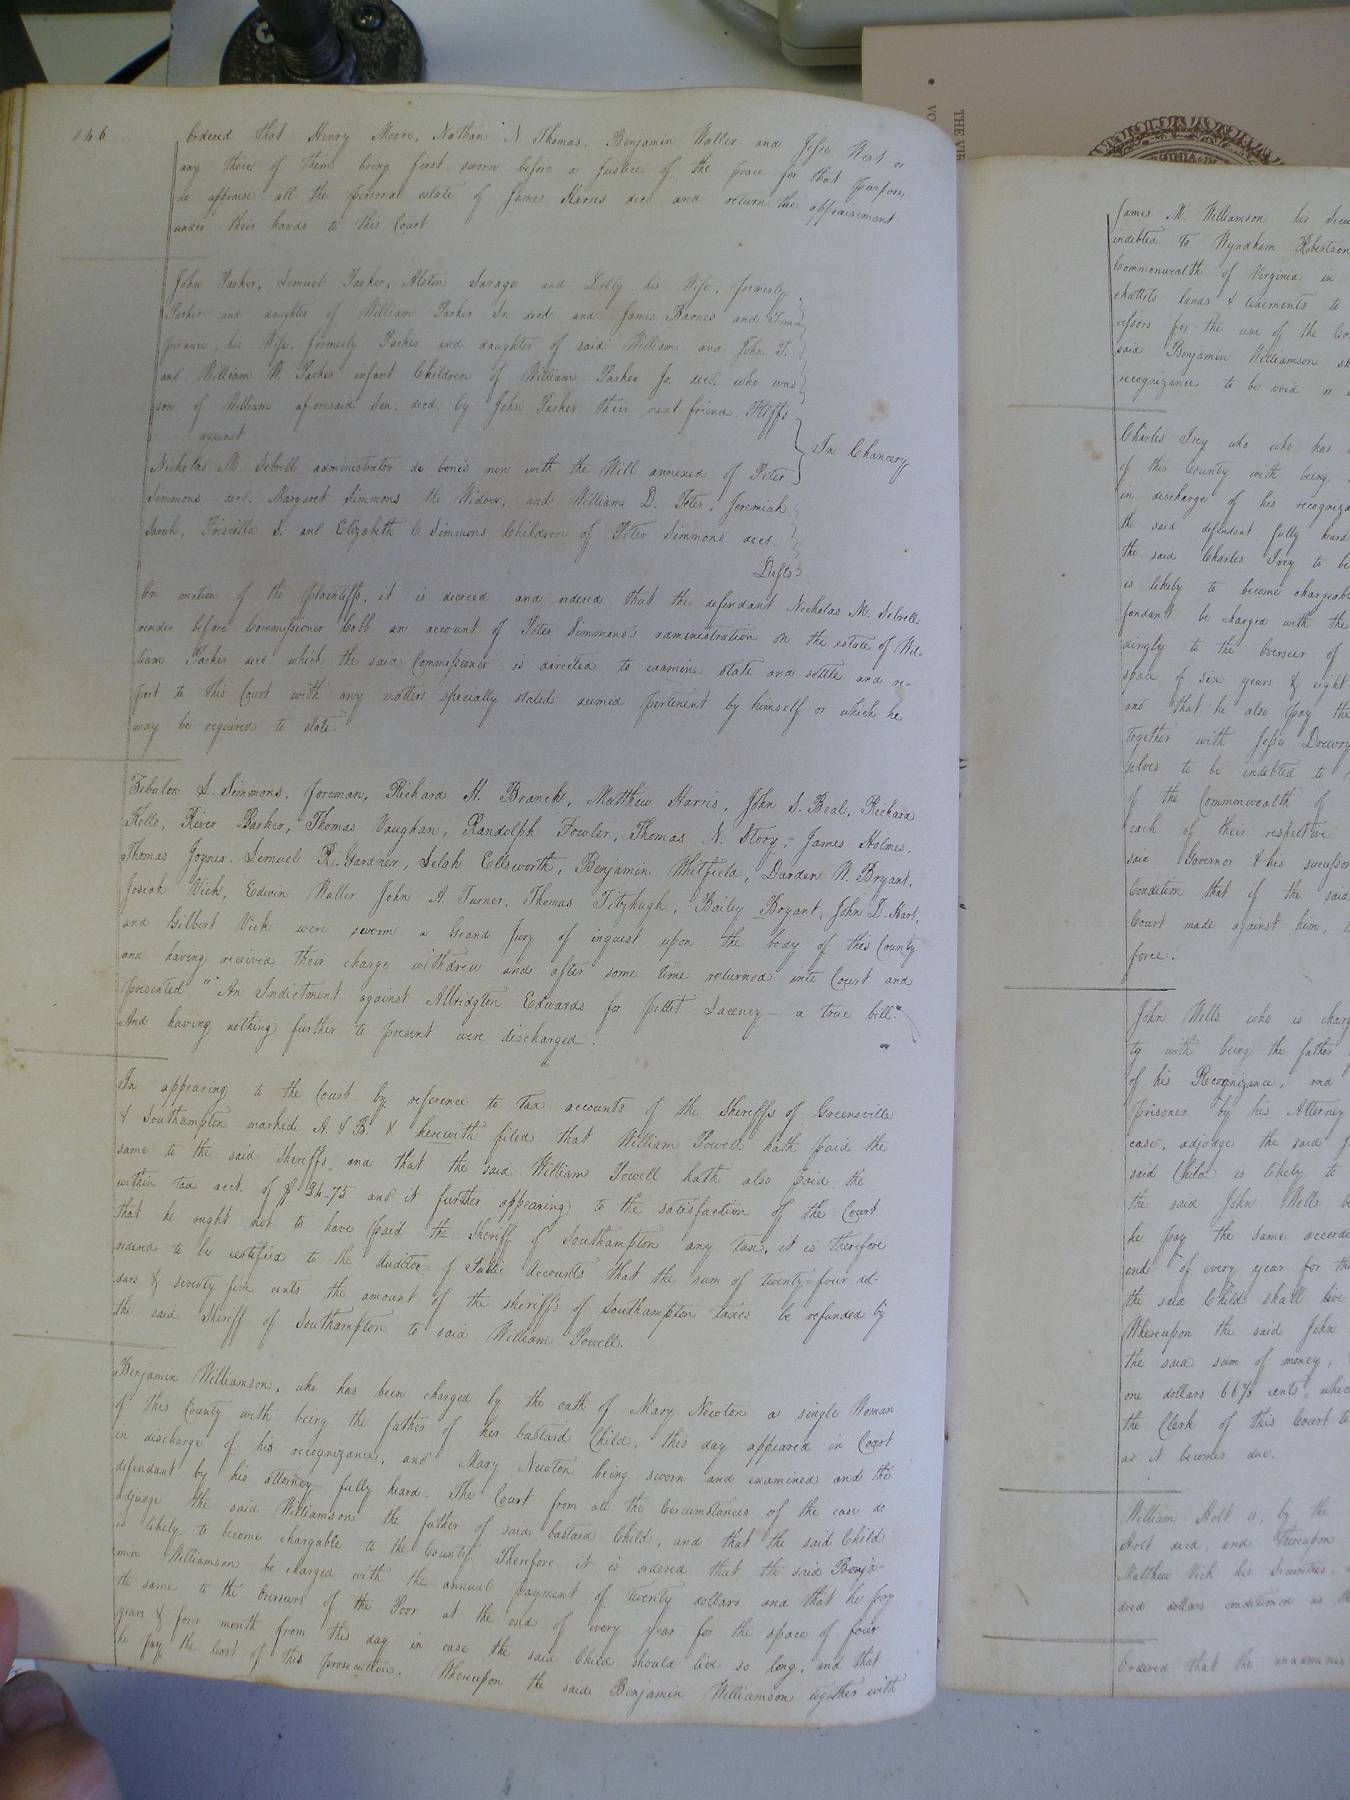 146
Ordered that Henry Moore, Nathan N. Thomas, Benjamin Waller and Jesse West or
any three of them being first sworn before a Justice of the peace for that purpose
do appraise all the personal estate of James Harris decd and return the appraisement
under their hands to this Court
John Parker, Lemuel Parker, Alston Savage and Dolly his Wife, formerly
Parker and daughter of William Parker Sr. decd and James Barnes and Tem-
perance, his Wife, formerly Parker and daughter of said William and John T.
and William W. Parker infant Children of William Parker Jr. decd. who was
son of William aforesaid Sen. decd. by John Parker their next friend Pltffs
against
In Chancery
Nicholas M Sebrell administrator de bonis non with the Will annexed of Peter
Simmons decd. Margaret Simmons the Widow, and William D. Peter, Jeremiah
Sarah, Priscilla S. and Elizabeth C Simmons Children of Peter Simmons decd.
Defts
On motion of the plaintiffs, it is decreed and ordered that the defendant Nicholas M. Sebrell
render before Commissioner Cobb an account of Peter Simmons's administration on the estate of Wil-
liam Parker decd which the said Commissioner is directed to examine state and settle and re-
port to this Court with any matters specially stated deemed pertinent by himself or which he
may be required to state.
Zebulon S. Simmons, foreman, Richard H. Branch, Matthew Harris, John S. Beal, Richard
Kello, River Barker, Thomas Vaughan, Randolph Fowler, Thomas N. Story, James Holmes,
Thomas Joyner, Lemuel R. Gardner, Selah Ellsworth, Benjamin Whitfield, Darden W. Bryant,
Josiah Vick, Edwin Waller John A Turner, Thomas Fitzhugh, Bailey Bryant, John D. Hart,
and Gilbert Vick were sworn a Grand Jury of inquest upon the body of this County
and having received their charge withdrew and after some time returned into Court and
presented "An Indictment against Allridgton Edwards for pettet Laceney - a true bill."
And having nothing further to present were discharged.
In appearing to the Court by reference to tax accounts of the Sheriffs of Greensville
& Southampton marked A. & B. & herewith filed that William Powell hath paid the
same to the said Sheriffs, and that the said William Powell hath also paid the
within tax acct. of $ 24.75 and it further appearing to the satisfaction of the Court
that he ought not to have paid the Sheriff of Southampton any tax, it is therefore
ordered to be certified to the Auditor of Public Accounts that the sum of twenty-four dol-
lars & seventy five cents the amount of the sheriff's of Southampton taxes be refunded by
the said Sheriff of Southampton to said William Powell.
Benjamin Williamson, who has been charged by the oath of Mary Newton a single Woman
of this County with being the father of her bastard Child, this day appeared in Court
in discharge of his recognizance, and Mary Newton being sworn and examined and the
defendant by his attorney fully heard. The Court from all the Circumstances of the case do
adjudge the said Williamson the father of said bastard Child, and that the said Child
is likely to become chargable to the County. Therefore it is ordered that the said Benja-
min Williamson be charged with the annual payment of twenty dollars and that he pay
the same to the Overseers of the Poor at the end of every year for the space of four
years & four month from this day in case the said Child should live so long, and that
he pay the Cost of this prosecution. Whereupon the said Benjamin Williamson together with
THE VIR
VO
James M. Williamson his
indebted to Wyndham Robertson
Commonwealth of Virginia in
chattels lands & tenements to
cessors for the use of the
said Benjamin Williamson
recognizance to be void
Charles Ivey who who has
of this County with being
in discharge of his
the said defendant fully heard
the said Charles Ivey to be
is likely to become
fendant be charged with the
dingly to the Overseer of
space of six years & eight
and that he also pay the
together with Jesse
selves to be indebted to
of the Commonwealth of
each of their respective
said Governor & his
Condition that if the said
Court made against him,
force.
John Wells who is
ty with being the father
of his Recognizance, and
prisoner by his Attorney
case, adjudge the said
said Child is likely to
the said John Wells
he pay the same
end of every year for the
the said Child shall live
Whereupon the said John
the said sum of money,
one dollars 66⅔ cents, which
the Clerk of this Court to
as it becomes due.
William Holt is, by the
Holt decd, and thereupon
Matthew Vick his Securities,
dred dollars conditioned as the
Ordered that the